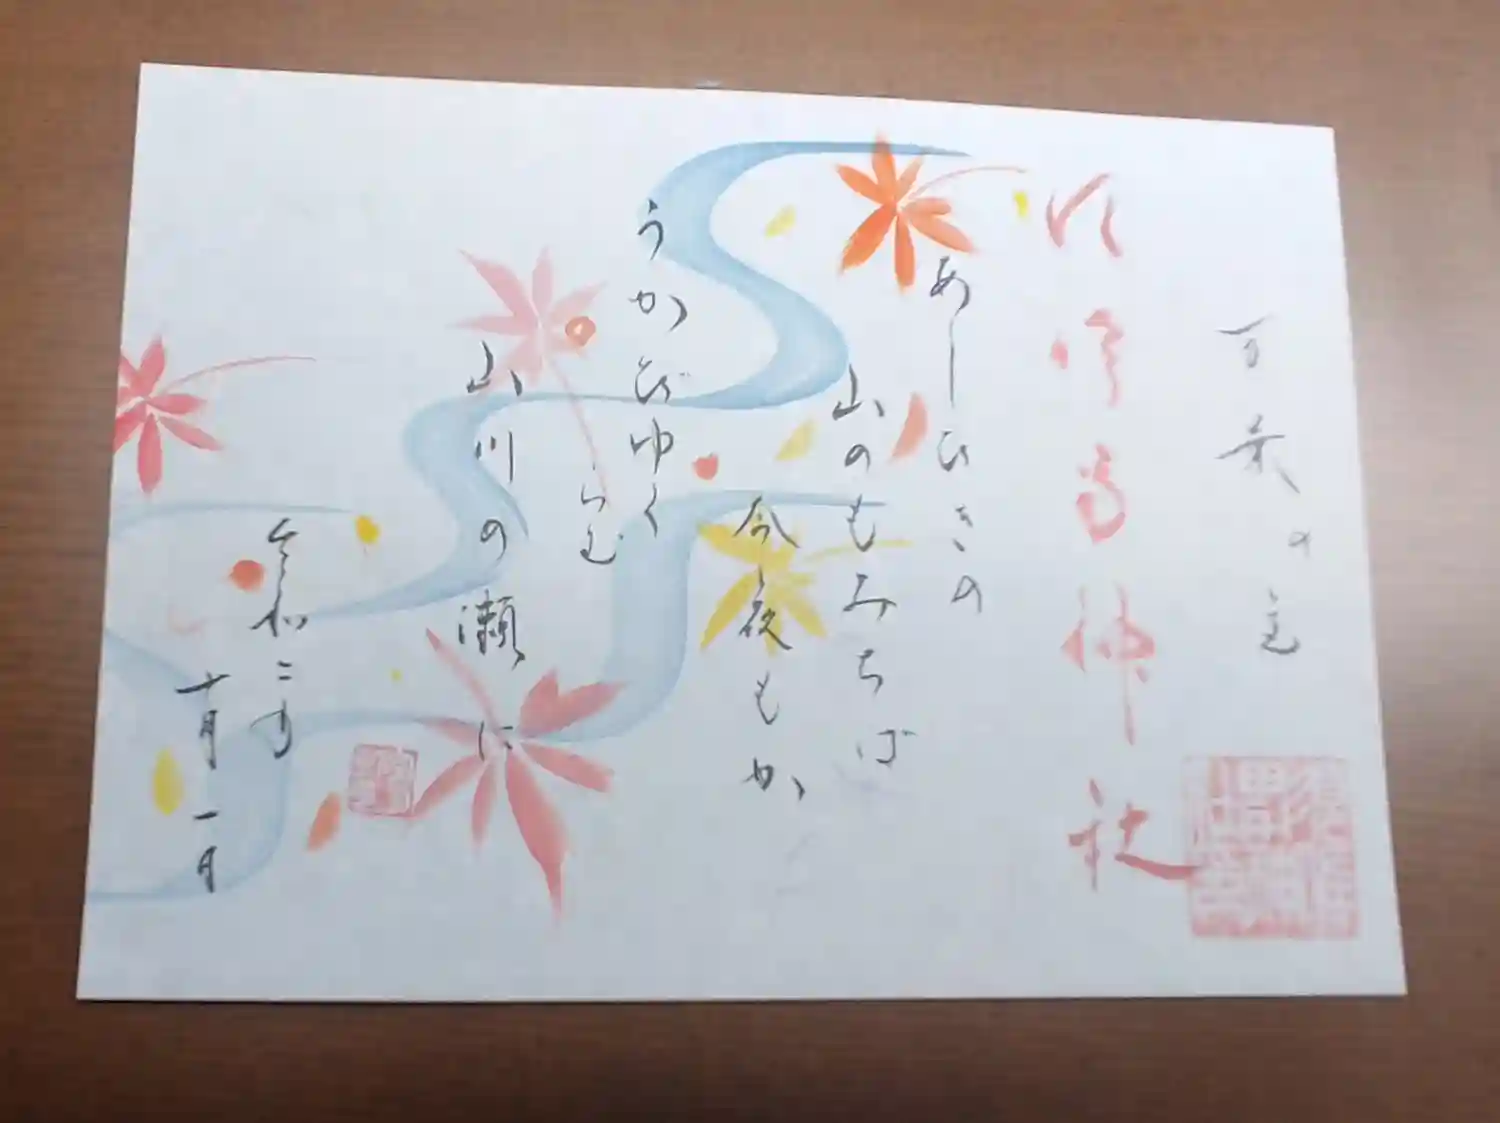 万葉の
神社
あしひきの
山のもみちば
今夜もか
うかびゆく
らむ
山川の瀬に
令和二年
十月一日